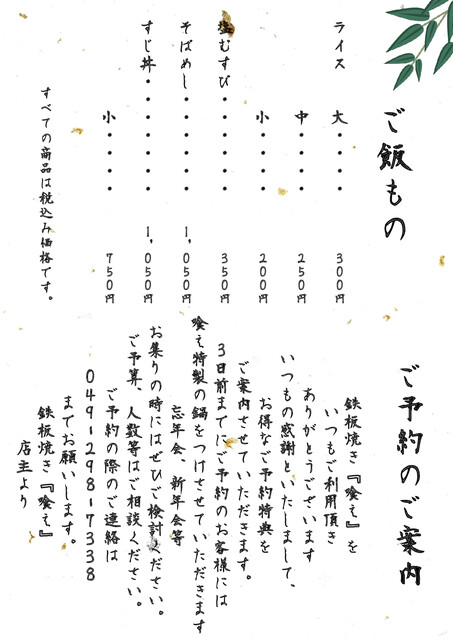 ご飯もの
ライス 大・・・・ 300円
中・・・・ 250円
小・・・・ 200円
塩むすび・・・・・・ 350円
そばめし・・・・・・ 1,050円
すじ丼・・・・・・・ 1,050円
小・・・・ 750円
すべての商品は税込み価格です。
ご予約のご案内
鉄板焼き『喰え』を
いつもご利用頂き
ありがとうございます
いつもの感謝といたしまして、
お得なご予約特典を
ご案内させていただきます。
3日前までにご予約のお客様には
喰え特製の鍋をつけさせていただきます
忘年会、新年会等
お集りの時にはぜひご検討ください。
ご予算、人数等はご相談ください。
ご予約の際のご連絡は
049-298-7338
までお願いします。
鉄板焼き『喰え』
店主より